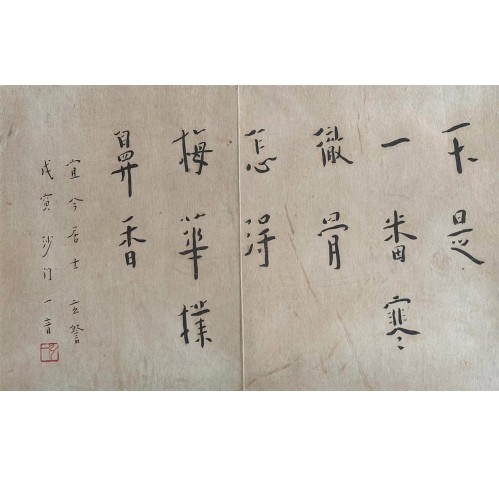 不是
一番寒
徹骨
怎得
梅華撲
鼻香
宜今居士
戊寅沙門一音